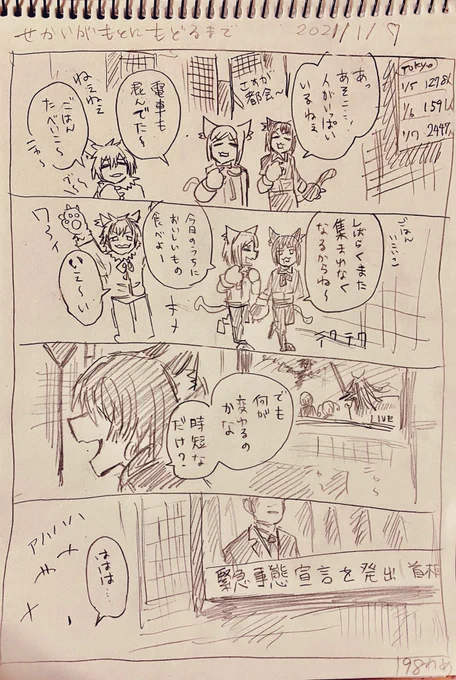 せかいがもとにもどるまで
2021/1/7
TOKYO
1/5 1278人
1/6 1591人
1/7 2447人
あっ
あそこ…!
人がいっぱい
いるねぇ
さすが
都会〜
電車も
混んでた〜
ねぇねぇ
ごはん
たべいこ〜
ごはん
いこいこ
しばらくまた
集まれなく
なるからね〜
テクテク
今日のうちに
おいしいもの
食べよー
ワーイ
いえ〜い
LIVE
でも
何が
変わるの
かな
時短な
だけ?
緊急事態宣言を発出 首相
アハハハハ
ははは…
198わめ